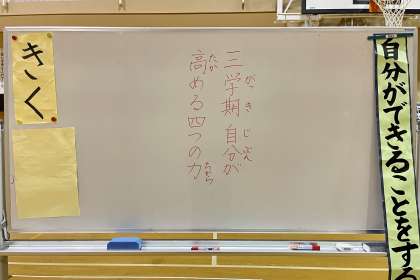 自分ができることをする
三学期 自分が
がっき じぶん
高める四つの力
たか ちから
きく